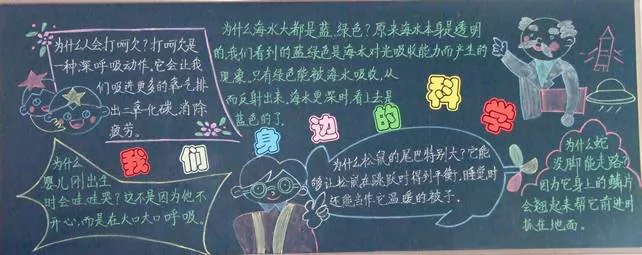 为什么人会打呵欠？打呵欠是
一种深呼吸动作，它会让我
们吸进更多的氧气，排
出二氧化碳，消除
疲劳。
为什么海水大都是蓝、绿色？原来海水本身是透明
的，我们看到的蓝绿色是海水对光吸收能力而产生的
现象，只有绿色能被海水吸收，从
而反射出来，海水更深时，看上去是
蓝色的了。
我们身边的科学
为什么
婴儿刚出生
时会哇哇哭？这不是因为他不
开心，而是在大口大口呼吸。
为什么松鼠的尾巴特别大？它能
够让松鼠在跳跃时得到平衡，睡觉时
还能当作它温暖的被子。
为什么蛇
没脚能走路？
因为它身上的鳞片
会翘起来帮它前进时
抓住地面。